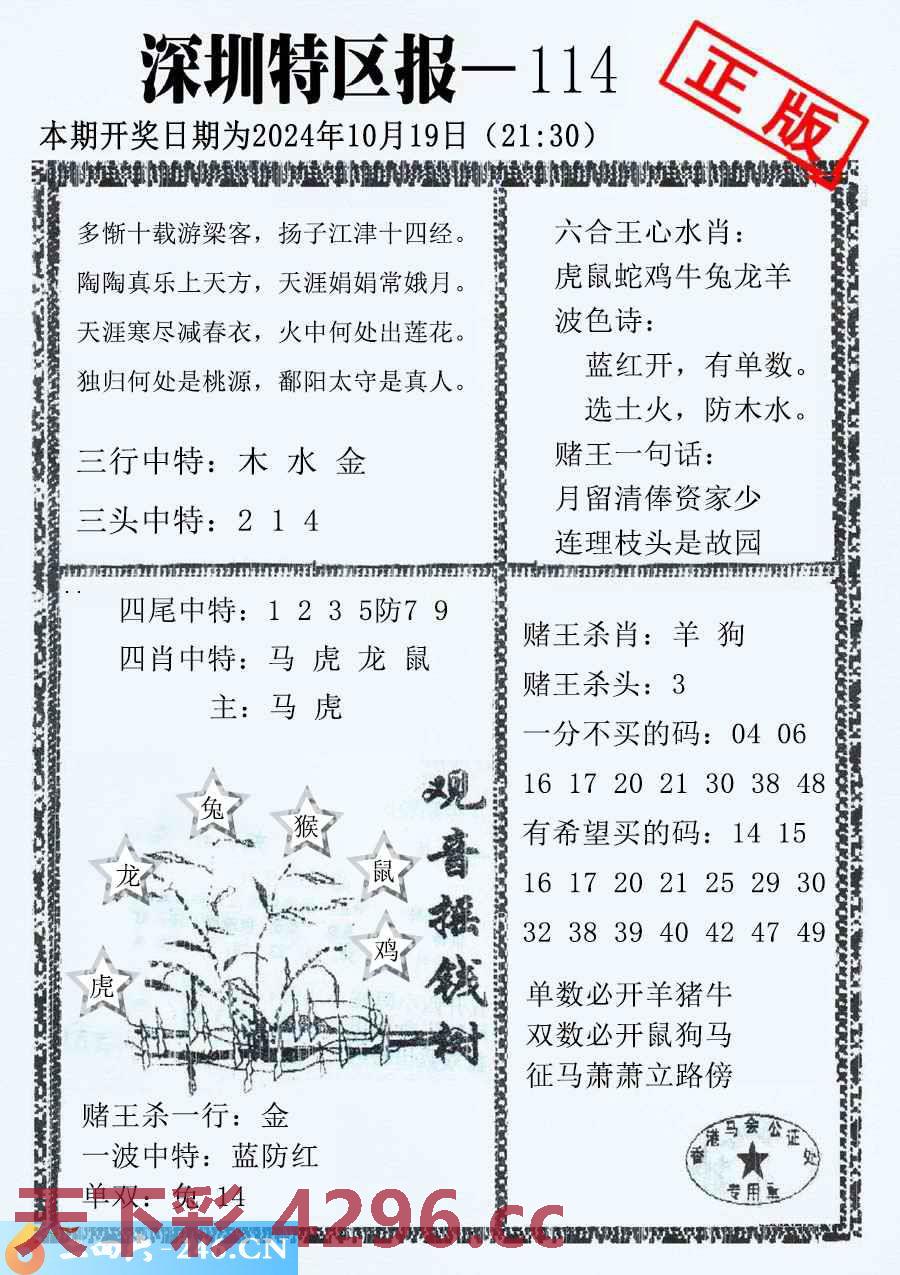 深圳特区报—114
正版
本期开奖日期为2024年10月19日（21:30）
多惭十载游梁客，扬子江津十四经。
陶陶真乐上天方，天涯娟娟常娥月。
天涯寒尽减春衣，火中何处出莲花。
独归何处是桃源，鄱阳太守是真人。
三行中特：木 水 金
三头中特：2 1 4
六合王心水肖：
虎鼠蛇鸡牛兔龙羊
波色诗：
蓝红开，有单数。
选土火，防木水。
赌王一句话：
月留清俸资家少
连理枝头是故园
四尾中特：1 2 3 5防7 9
四肖中特：马 虎 龙 鼠
主：马 虎
观音摇钱树
兔
猴
龙
鼠
鸡
虎
赌王杀一行：金
一波中特：蓝防红
单双：兔 14
赌王杀肖：羊 狗
赌王杀头：3
一分不买的码：04 06
16 17 20 21 30 38 48
有希望买的码：14 15
16 17 20 21 25 29 30
32 38 39 40 42 47 49
单数必开羊猪牛
双数必开鼠狗马
征马萧萧立路傍
香港马会公证处
专用章
天下彩 4296.cc
-246.CN